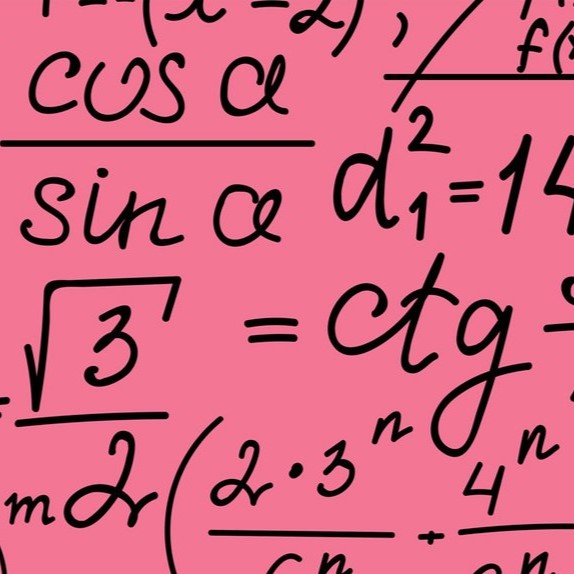 cos α
sin α
d₁² = 14
√3
= ctg
m 2
( 2·3ⁿ + 4ⁿ